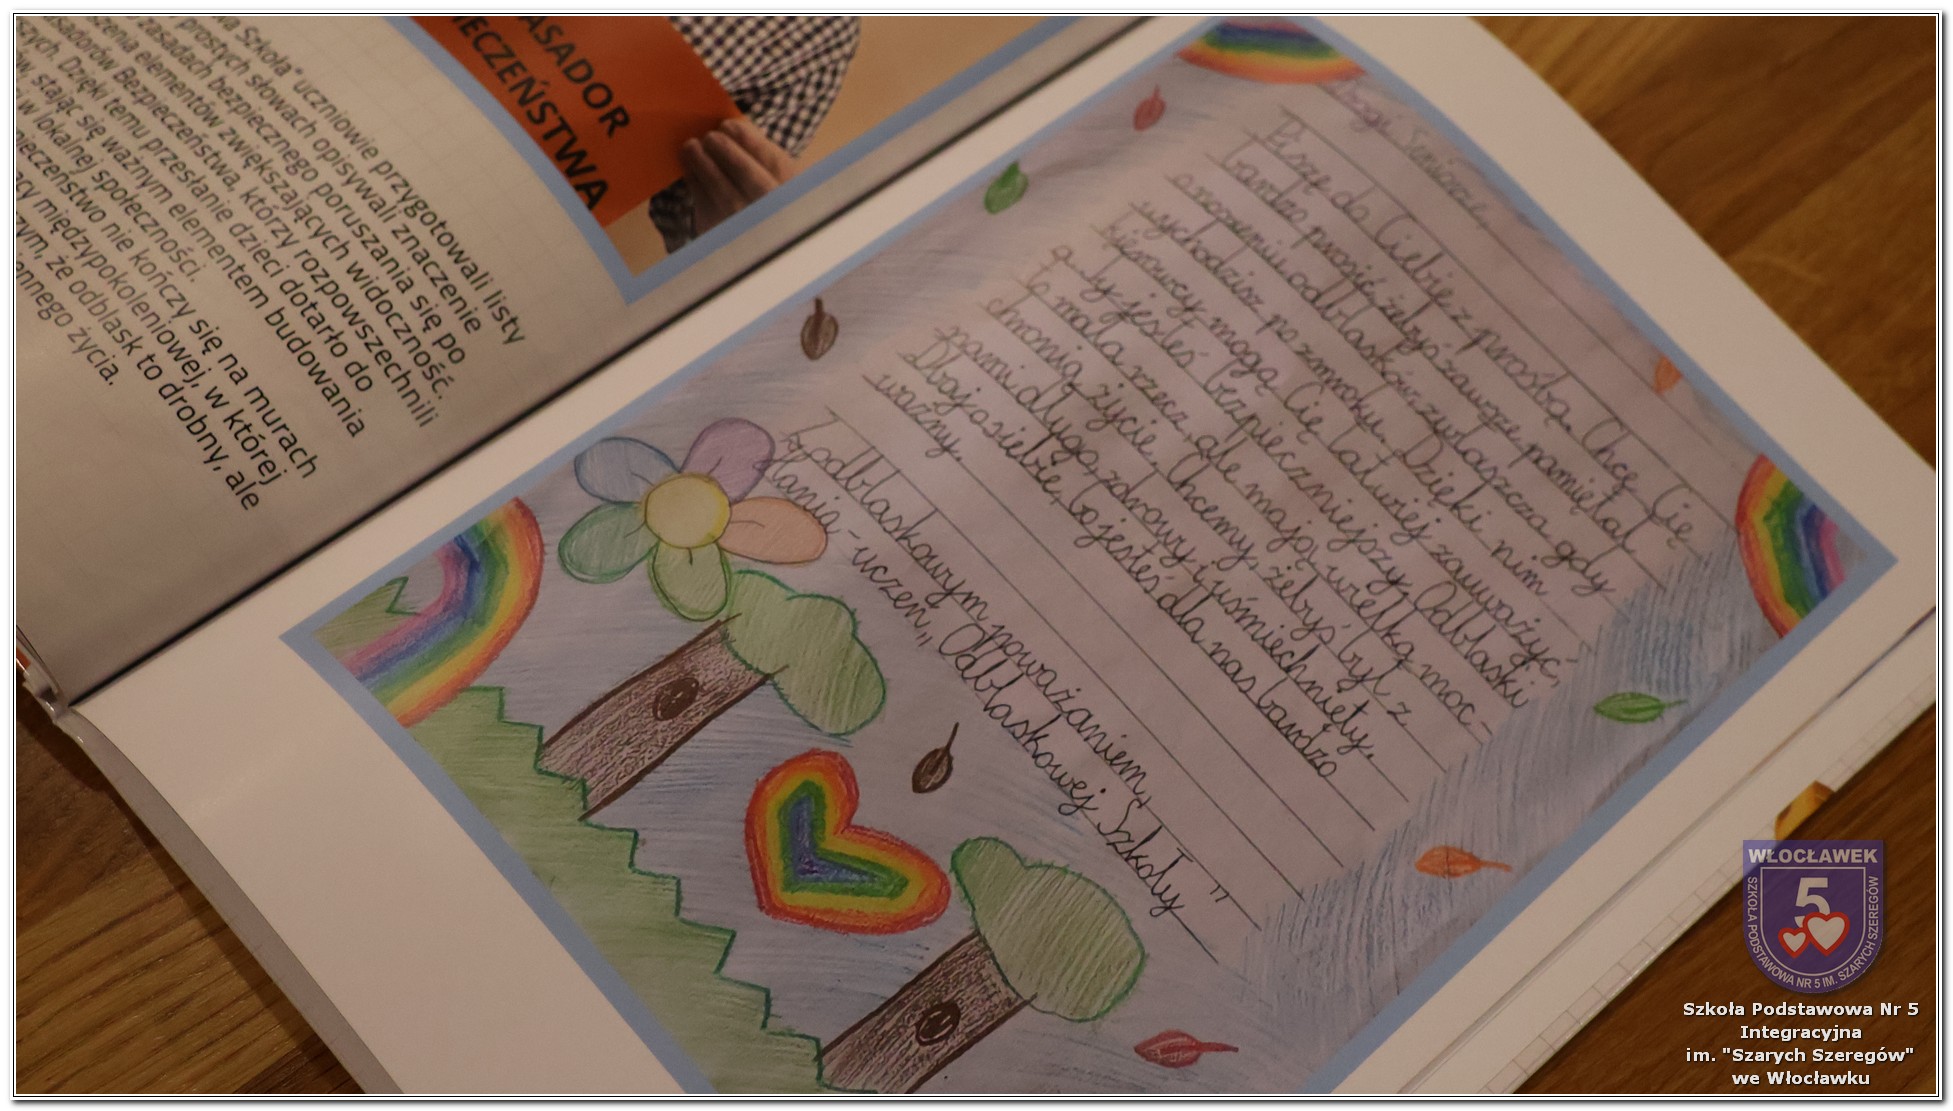 wa Szkoła" uczniowie przygotowali listy
prostych słowach opisywali znaczenie
zasadach bezpiecznego poruszania się po
szenia elementów zwiększających widoczność.
asadorów Bezpieczeństwa, którzy rozpowszechnili
szych. Dzięki temu przesłanie dzieci dotarło do
ów, stając się ważnym elementem budowania
w lokalnej społeczności.
nieczeństwo nie kończy się na murach
acy międzypokoleniowej, w której
zym, że odblask to drobny, ale
iennego życia.
ASADOR
IECZEŃSTWA
Drogi Seniorze,
Piszę do Ciebie z prośbą. Chcę Cię
bardzo prosić, żebyś zawsze pamiętał
o noszeniu odblasków, zwłaszcza gdy
wychodzisz po zmroku. Dzięki nim
kierowcy mogą Cię łatwiej zauważyć,
a ty jesteś bezpieczniejszy. Odblaski
to mała rzecz, ale mają wielką moc -
chronią życie. Chcemy, żebyś był z
nami długo, zdrowy i uśmiechnięty.
Dbaj o siebie, bo jesteś dla nas bardzo
ważny.
Z odblaskowym poważaniem,
- uczeń „ Odblaskowej Szkoły "
WŁOCŁAWEK
5
SZKOŁA PODSTAWOWA NR 5 IM. SZARYCH SZEREGÓW
Szkoła Podstawowa Nr 5
Integracyjna
im. "Szarych Szeregów"
we Włocławku